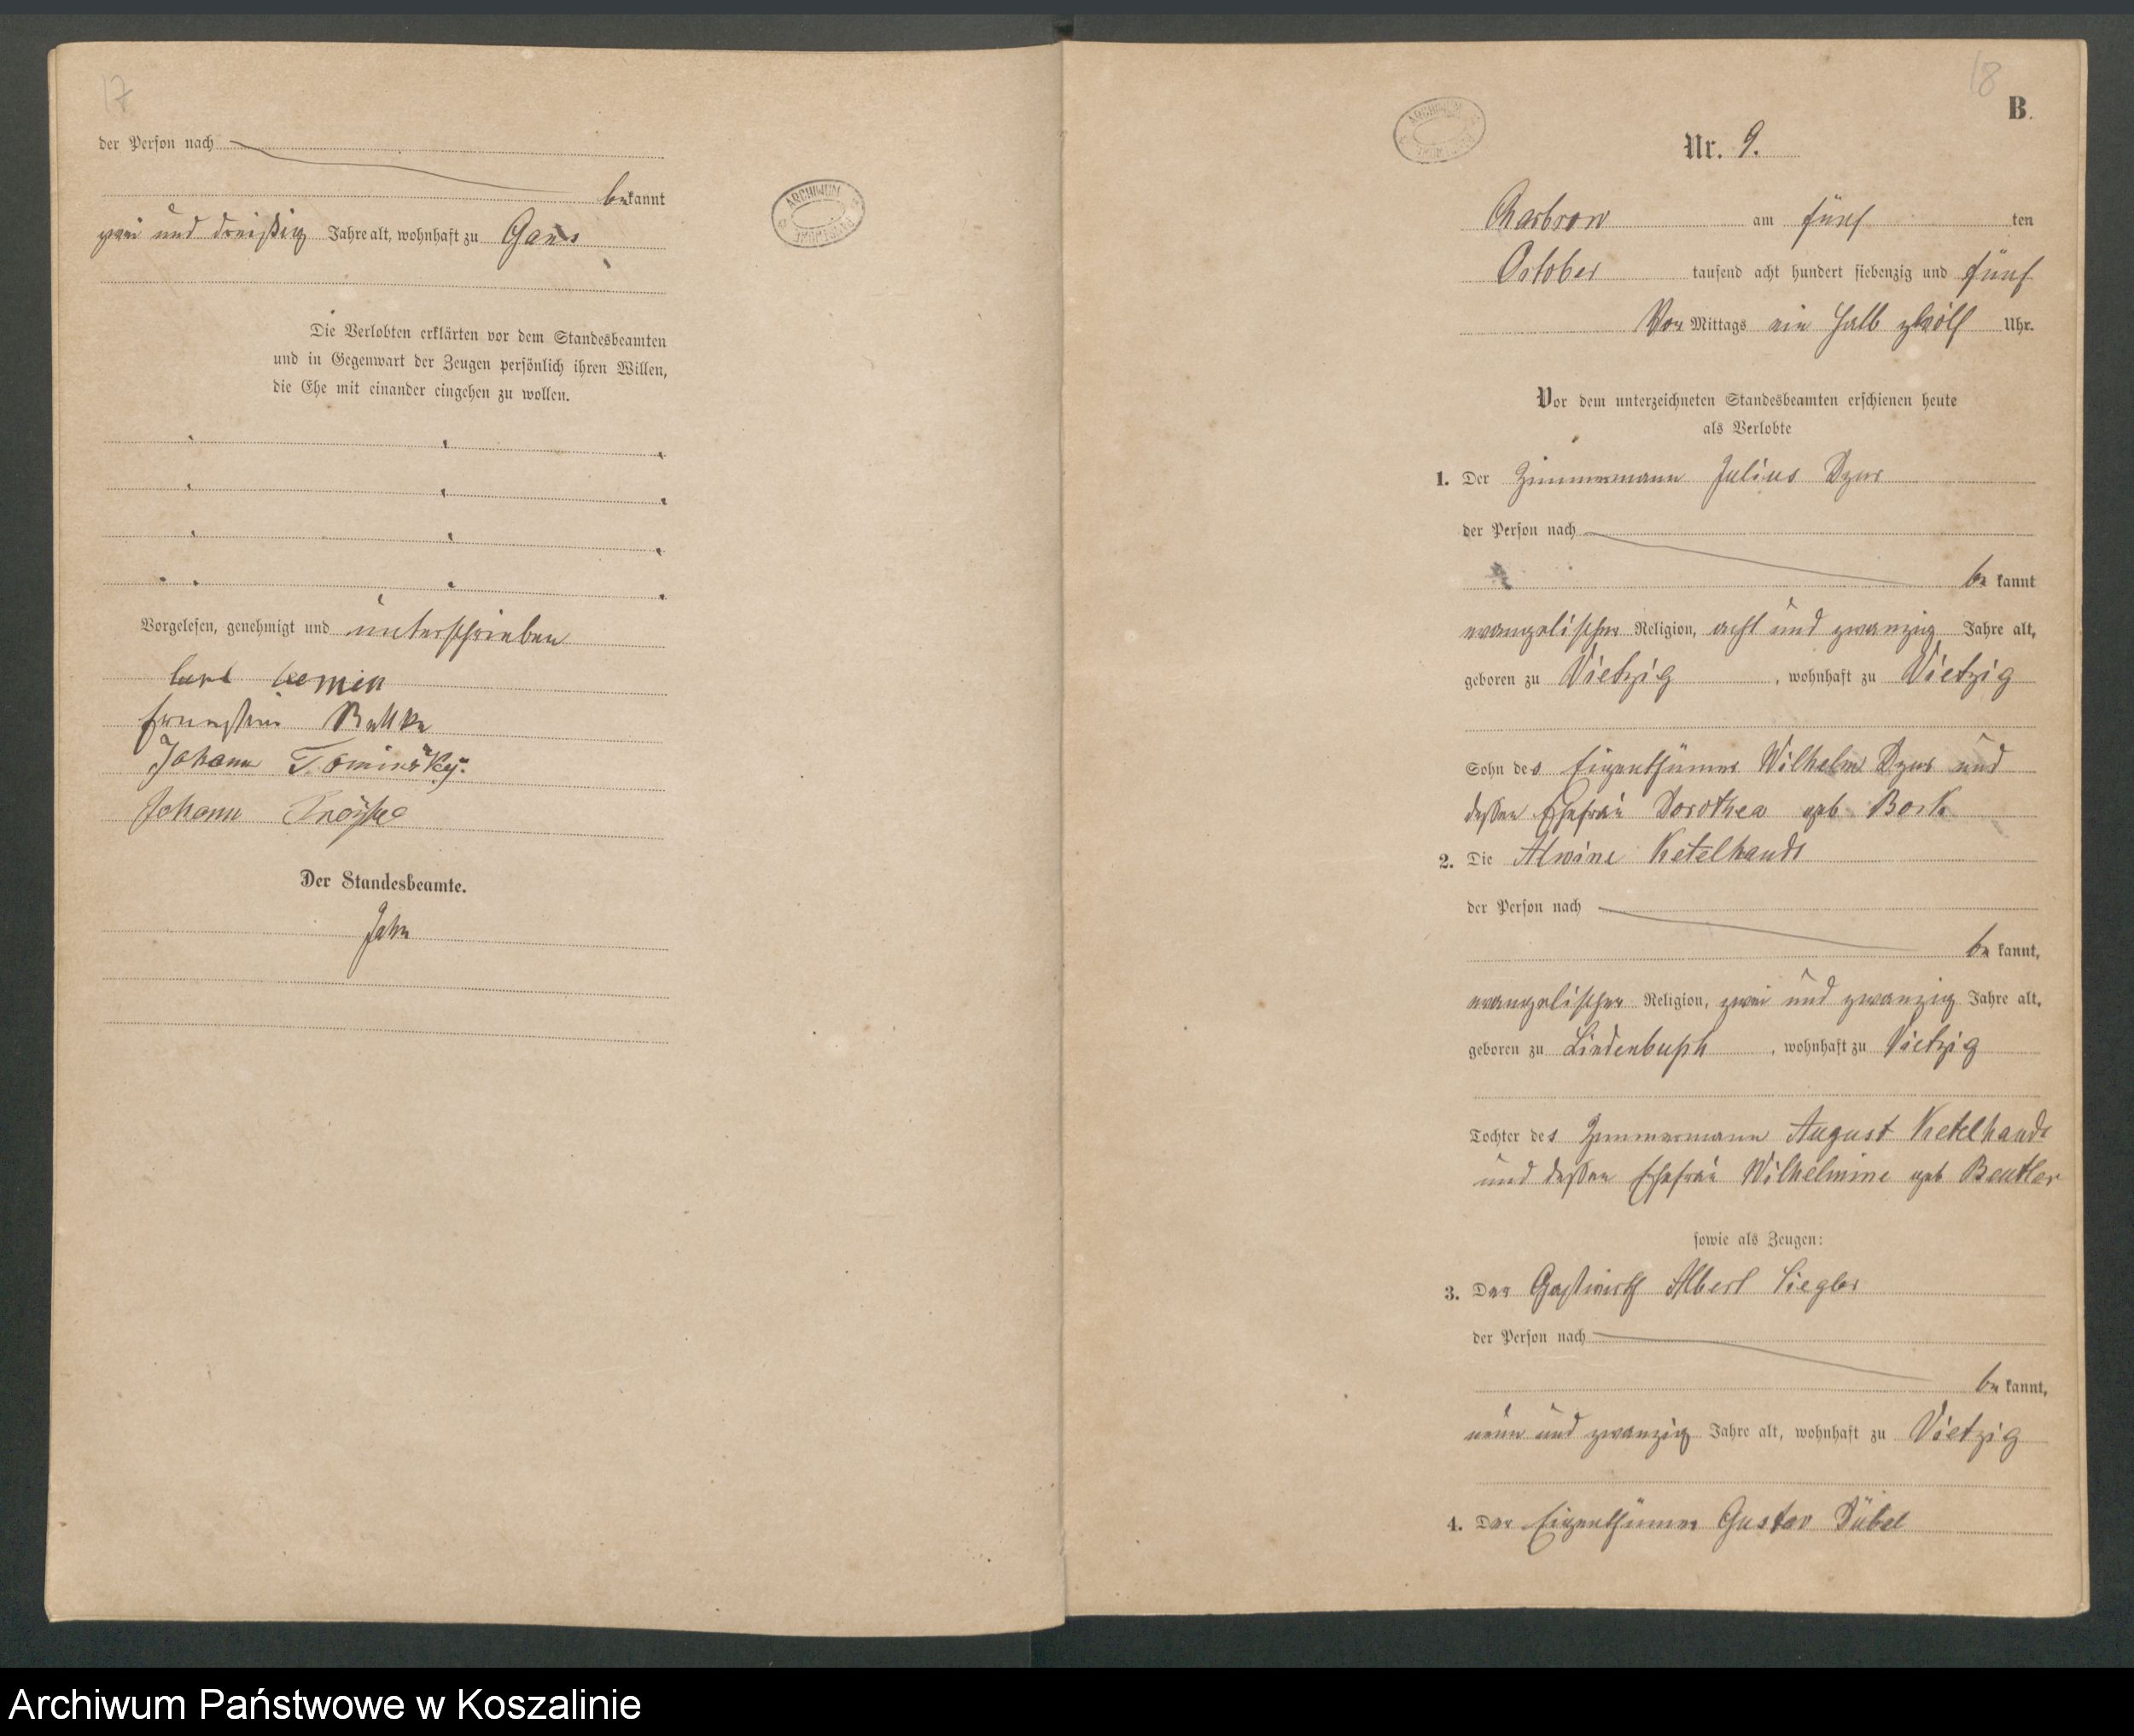 17
der Person nach
bekannt
zwei und dreißig Jahre alt, wohnhaft zu Gans
ARCHIWUM
Die Verlobten erklärten vor dem Standesbeamten
und in Gegenwart der Zeugen persönlich ihren Willen,
die Ehe mit einander eingehen zu wollen.
Vorgelesen, genehmigt und unterschrieben
Carl
Johann
Johann
Der Standesbeamte.
Jahn
18
B.
ARCHIWUM
Nr. 9.
Charbrow am fünf ten
October tausend acht hundert siebenzig und fünf
Vor Mittags ein halb zwölf Uhr.
Vor dem unterzeichneten Standesbeamten erschienen heute
als Verlobte
1. Der Zimmermann Julius Dzur
der Person nach
be kannt
evangelischer Religion, acht und zwanzig Jahre alt,
geboren zu Vietzig, wohnhaft zu Vietzig
Sohn des Eigenthümer Wilhelm Dzur und
deßen Ehefrau Dorothea geb Bork
2. Die Alwine Ketelhandt
der Person nach
be kannt,
evangelischer Religion, zwei und zwanzig Jahre alt,
geboren zu Lindenbusch, wohnhaft zu Vietzig
Tochter des Zimmermann August Ketelhandt
und deßen Ehefrau Wilhelmine geb Beutler
sowie als Zeugen:
3. Der Gastwirth Albert Siegler
der Person nach
be kannt,
neun und zwanzig Jahre alt, wohnhaft zu Vietzig
4. Der Eigenthümer Gustav Dübel
Archiwum Państwowe w Koszalinie